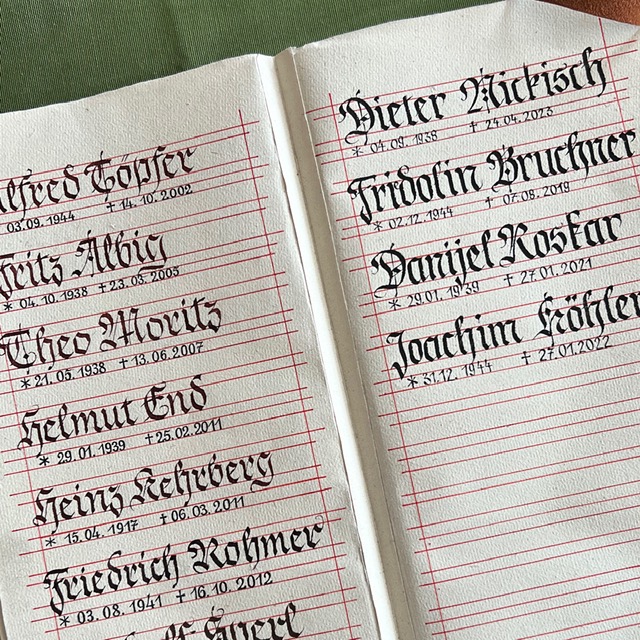 Alfred Töpfer
03.09.1944 +14.10.2002
Fritz Albig
* 04.10.1938 +23.03.2003
Theo Moritz
* 21.05.1938 +13.06.2007
Helmut End
* 29.01.1939 +25.02.2011
Heinz Kehrberg
* 15.04.1917 +06.03.2011
Friedrich Rohmer
* 03.08.1941 +16.10.2012
Dieter Mickisch
* 04.09.1938 +24.04.2023
Fridolin Bruckner
* 02.12.1944 +07.08.2019
Danijel Roskar
* 29.01.1939 +27.01.2021
Joachim Köhler
* 31.12.1944 +27.01.2022